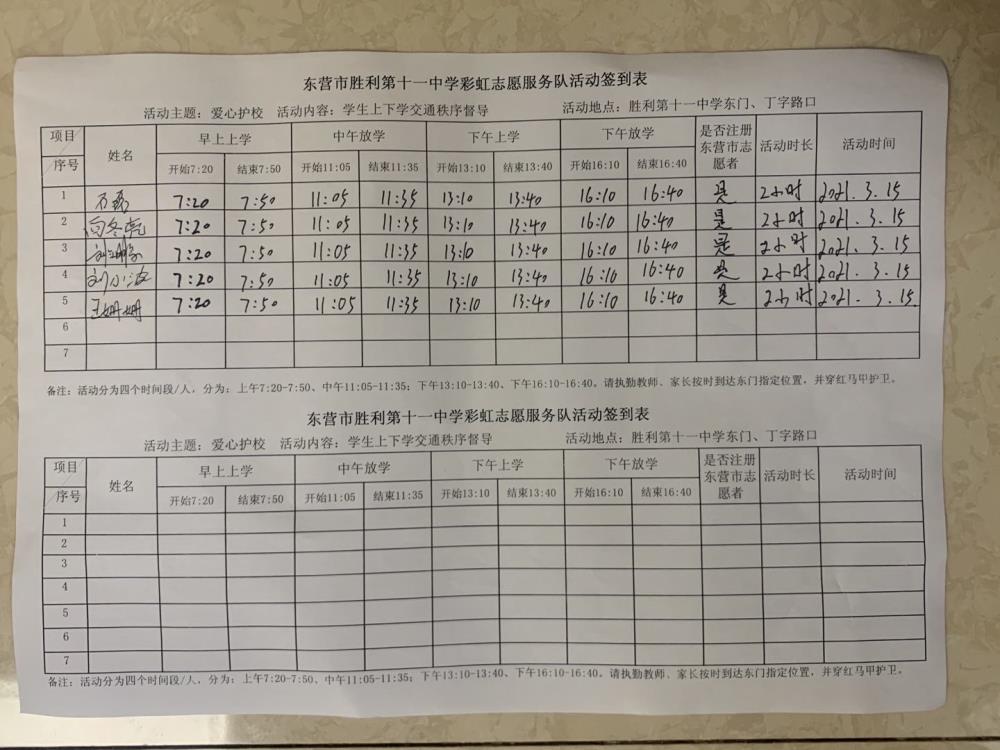 东营市胜利第十一中学彩虹志愿服务队活动签到表
活动主题：爱心护校 活动内容：学生上下学交通秩序督导 活动地点：胜利第十一中学东门、丁字路口
项目 序号 姓名 早上上学 中午放学 下午上学 下午放学 是否注册东营市志愿者 活动时长 活动时间
开始7:20 结束7:50 开始11:05 结束11:35 开始13:10 结束13:40 开始16:10 结束16:40
1 石磊 7:20 7:50 11:05 11:35 13:10 13:40 16:10 16:40 是 2小时 2021.3.15
2 7:20 7:50 11:05 11:35 13:10 13:40 16:10 16:40 是 2小时 2021.3.15
3 7:20 7:50 11:05 11:35 13:10 13:40 16:10 16:40 是 2小时 2021.3.15
4 刘小波 7:20 7:50 11:05 11:35 13:10 13:40 16:10 16:40 是 2小时 2021.3.15
5 王姗姗 7:20 7:50 11:05 11:35 13:10 13:40 16:10 16:40 是 2小时 2021.3.15
6
7
备注：活动分为四个时间段/人，分为：上午7:20-7:50、中午11:05-11:35；下午13:10-13:40、下午16:10-16:40。请执勤教师、家长按时到达东门指定位置，并穿红马甲护卫。
东营市胜利第十一中学彩虹志愿服务队活动签到表
活动主题：爱心护校 活动内容：学生上下学交通秩序督导 活动地点：胜利第十一中学东门、丁字路口
项目 序号 姓名 早上上学 中午放学 下午上学 下午放学 是否注册东营市志愿者 活动时长 活动时间
开始7:20 结束7:50 开始11:05 结束11:35 开始13:10 结束13:40 开始16:10 结束16:40
1
2
3
4
5
6
7
备注：活动分为四个时间段/人，分为：上午7:20-7:50、中午11:05-11:35；下午13:10-13:40、下午16:10-16:40。请执勤教师、家长按时到达东门指定位置，并穿红马甲护卫。